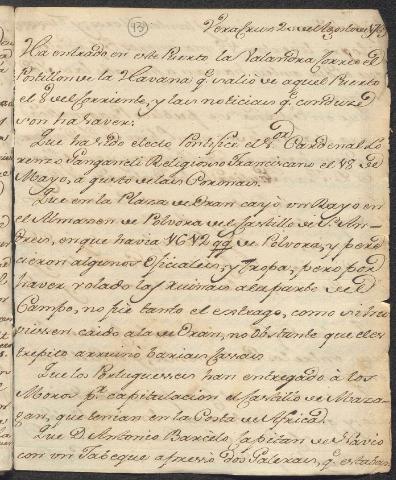 43
Veracruz 2 de Agosto de 1769
Ha entrado en este Puerto la Valandra Correo el
Postillon de la Havana q.e salio de aquel Puerto
el 8 del corriente, y las noticias q.e conduce
son ha haver:
Que ha sido electo Pontifice el S.or Cardenal Lo
renzo Ganganeli Religioso Franciscano el 18 de
Mayo, a gusto de las Coronas.
Que en la Plaza de Oran cayó un Rayo en
el Almazen de Polvora del Castillo de S.n An
dres, en que havia 1612 qq.s de Polvora, y pere
cieron algunos Oficiales, y Tropa, pero por
haver volado las ruinas ala parte de
Campo, no fue tanto el estrago, como si hu
viesen caido ala de Oran, no obstante que el es
trepito arruinó barias Cassas
Que los Portuguesses han entregado à los
Moros p.r capitulacion el Castillo de Maza
gan, que tenian en la Costa de Africa
Que D. Antonio Barcelo Capitan de Navio
con un Jabeque apresso dos Galeras, q.e estaban